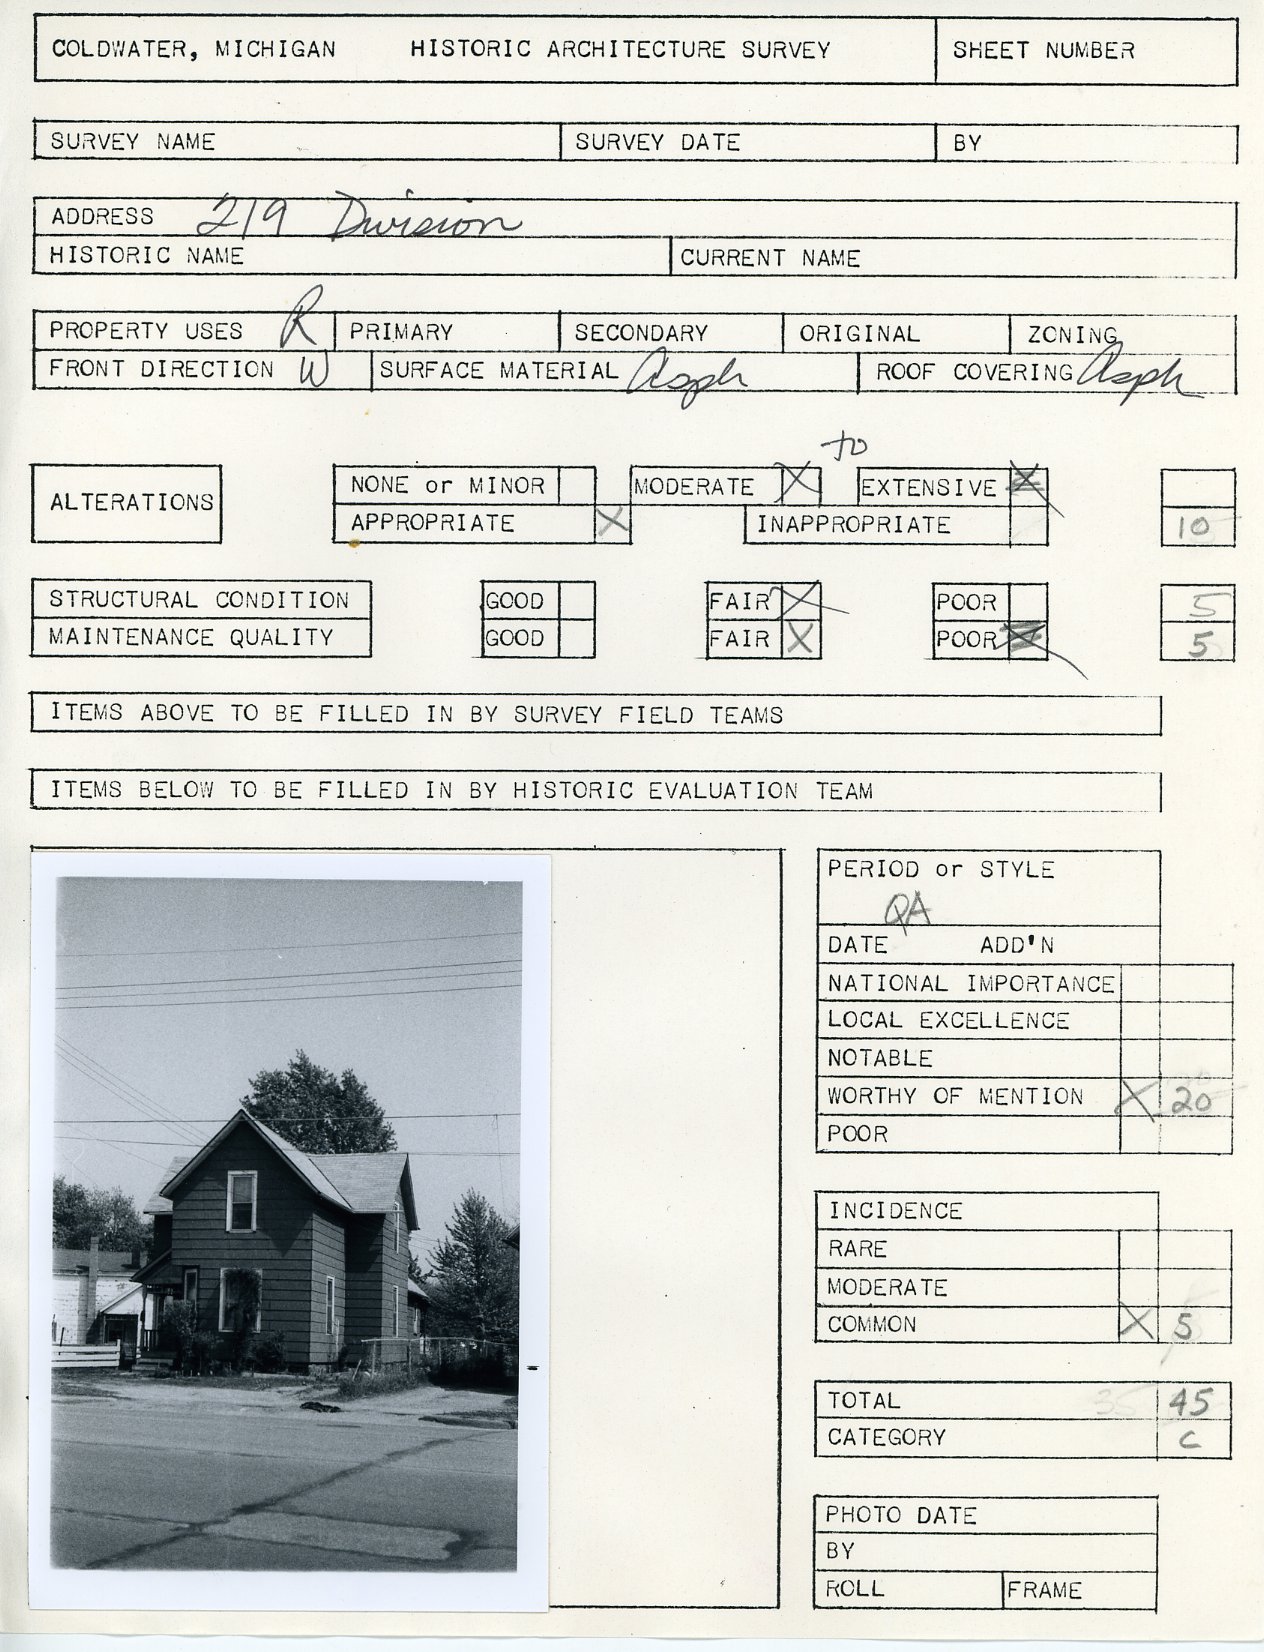 COLDWATER, MICHIGAN HISTORIC ARCHITECTURE SURVEY SHEET NUMBER
SURVEY NAME SURVEY DATE BY
ADDRESS 219 Division
HISTORIC NAME CURRENT NAME
PROPERTY USES R PRIMARY SECONDARY ORIGINAL ZONING
FRONT DIRECTION W SURFACE MATERIAL Asph ROOF COVERING Asph
to
ALTERATIONS NONE or MINOR MODERATE X EXTENSIVE X
APPROPRIATE X INAPPROPRIATE 10
STRUCTURAL CONDITION GOOD FAIR X POOR 5
MAINTENANCE QUALITY GOOD FAIR X POOR X 5
ITEMS ABOVE TO BE FILLED IN BY SURVEY FIELD TEAMS
ITEMS BELOW TO BE FILLED IN BY HISTORIC EVALUATION TEAM
PERIOD or STYLE
QA
DATE ADD'N
NATIONAL IMPORTANCE
LOCAL EXCELLENCE
NOTABLE
WORTHY OF MENTION X 20
POOR
INCIDENCE
RARE
MODERATE
COMMON X 5
TOTAL 35 45
CATEGORY C
PHOTO DATE
BY
ROLL FRAME